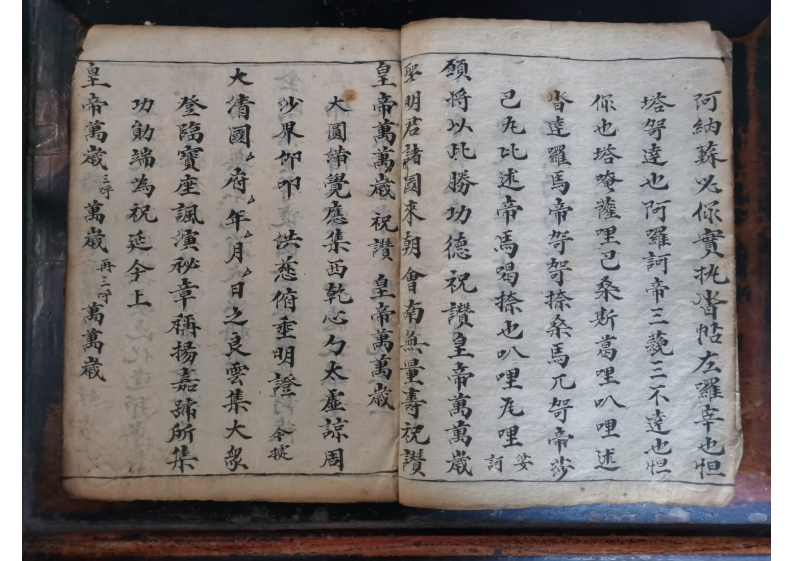 阿納蘇必你實执沓帖左囉宰也怛
塔哿達也阿羅訶帝三藐三不達也怛
你也塔唵薩哩巴桑斯葛哩叭哩述
沓達羅馬帝哿哿捺桑馬兀哿帝沙
己尢比述帝馬喝捺也叭哩尢哩娑訶
願將以此勝功德祝讚皇帝萬萬歲
聖明君諸國來朝會南無量壽祝讚
皇帝萬萬歲祝讚 皇帝萬萬歲
大圓滿覺應集西乾心勺太虛諒周
沙界仰叩 洪慈俯垂明證 今據
大清國 府 年 月 日之良雲集大衆
登臨寶座諷演祕章稱揚嘉號所集
功勛端為祝延今上
皇帝萬歲三呼萬歲再三呼萬萬歲